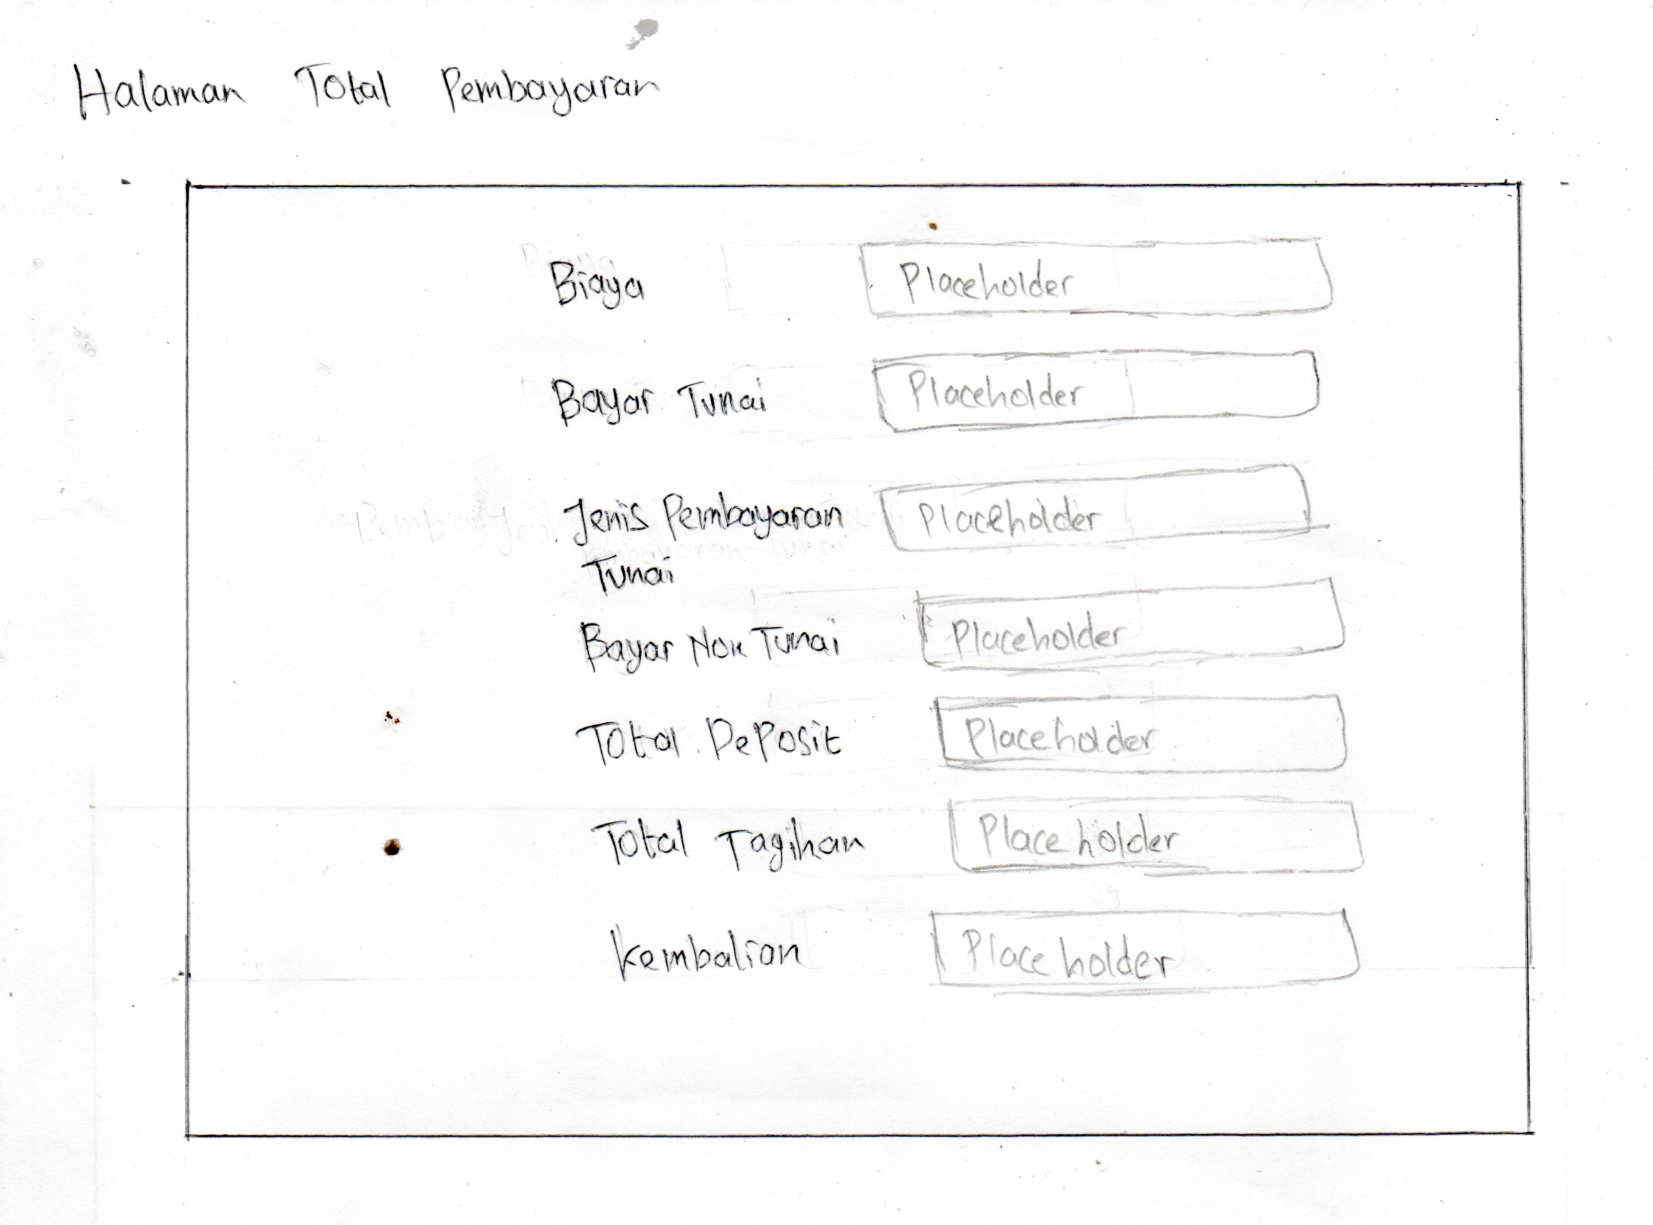 Halaman Total Pembayaran
Biaya Placeholder
Bayar Tunai Placeholder
Jenis Pembayaran Placeholder
Tunai
Bayar Non Tunai Placeholder
Total Deposit Placeholder
Total Tagihan Placeholder
Kembalian Placeholder